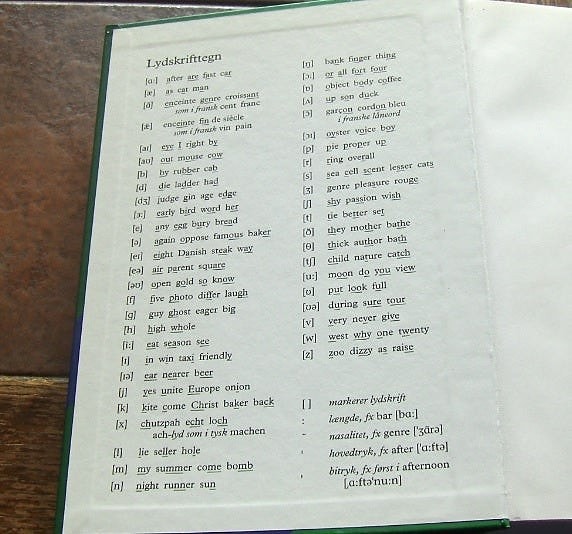 Lydskrifttegn
[ɑ:] after are fast car
[æ] as cat man
[ɑ̃] enceinte genre croissant
som i fransk cent franc
[æ̃] enceinte fin de siècle
som i fransk vin pain
[aɪ] eye I right by
[aʊ] out mouse cow
[b] by rubber cab
[d] die ladder had
[dʒ] judge gin age edge
[ɜ:] early bird word her
[e] any egg bury bread
[ə] again oppose famous baker
[eɪ] eight Danish steak way
[eə] air parent square
[əʊ] open gold so know
[f] five photo differ laugh
[g] guy ghost eager big
[h] high whole
[i:] eat season see
[ɪ] in win taxi friendly
[ɪə] ear nearer beer
[j] yes unite Europe onion
[k] kite come Christ baker back
[x] chutzpah echt loch
ach-lyd som i tysk machen
[l] lie seller hole
[m] my summer come bomb
[n] night runner sun
[ŋ] bank finger thing
[ɔ:] or all fort four
[ɒ] object body coffee
[ʌ] up son duck
[ɔ] garçon cordon bleu
i franske låneord
[ɔɪ] oyster voice boy
[p] pie proper up
[r] ring overall
[s] sea cell scent lesser cats
[ʒ] genre pleasure rouge
[ʃ] shy passion wish
[t] tie better set
[ð] they mother bathe
[θ] thick author bath
[tʃ] child nature catch
[u:] moon do you view
[ʊ] put look full
[ʊə] during sure tour
[v] very never give
[w] west why one twenty
[z] zoo dizzy as raise
[ ] markerer lydskrift
: længde, fx bar [bɑ:]
~ nasalitet, fx genre ['ʒɑ̃rə]
ˈ hovedtryk, fx after ['ɑ:ftə]
ˌ bitryk, fx først i afternoon
[ˌɑ:ftə'nu:n]